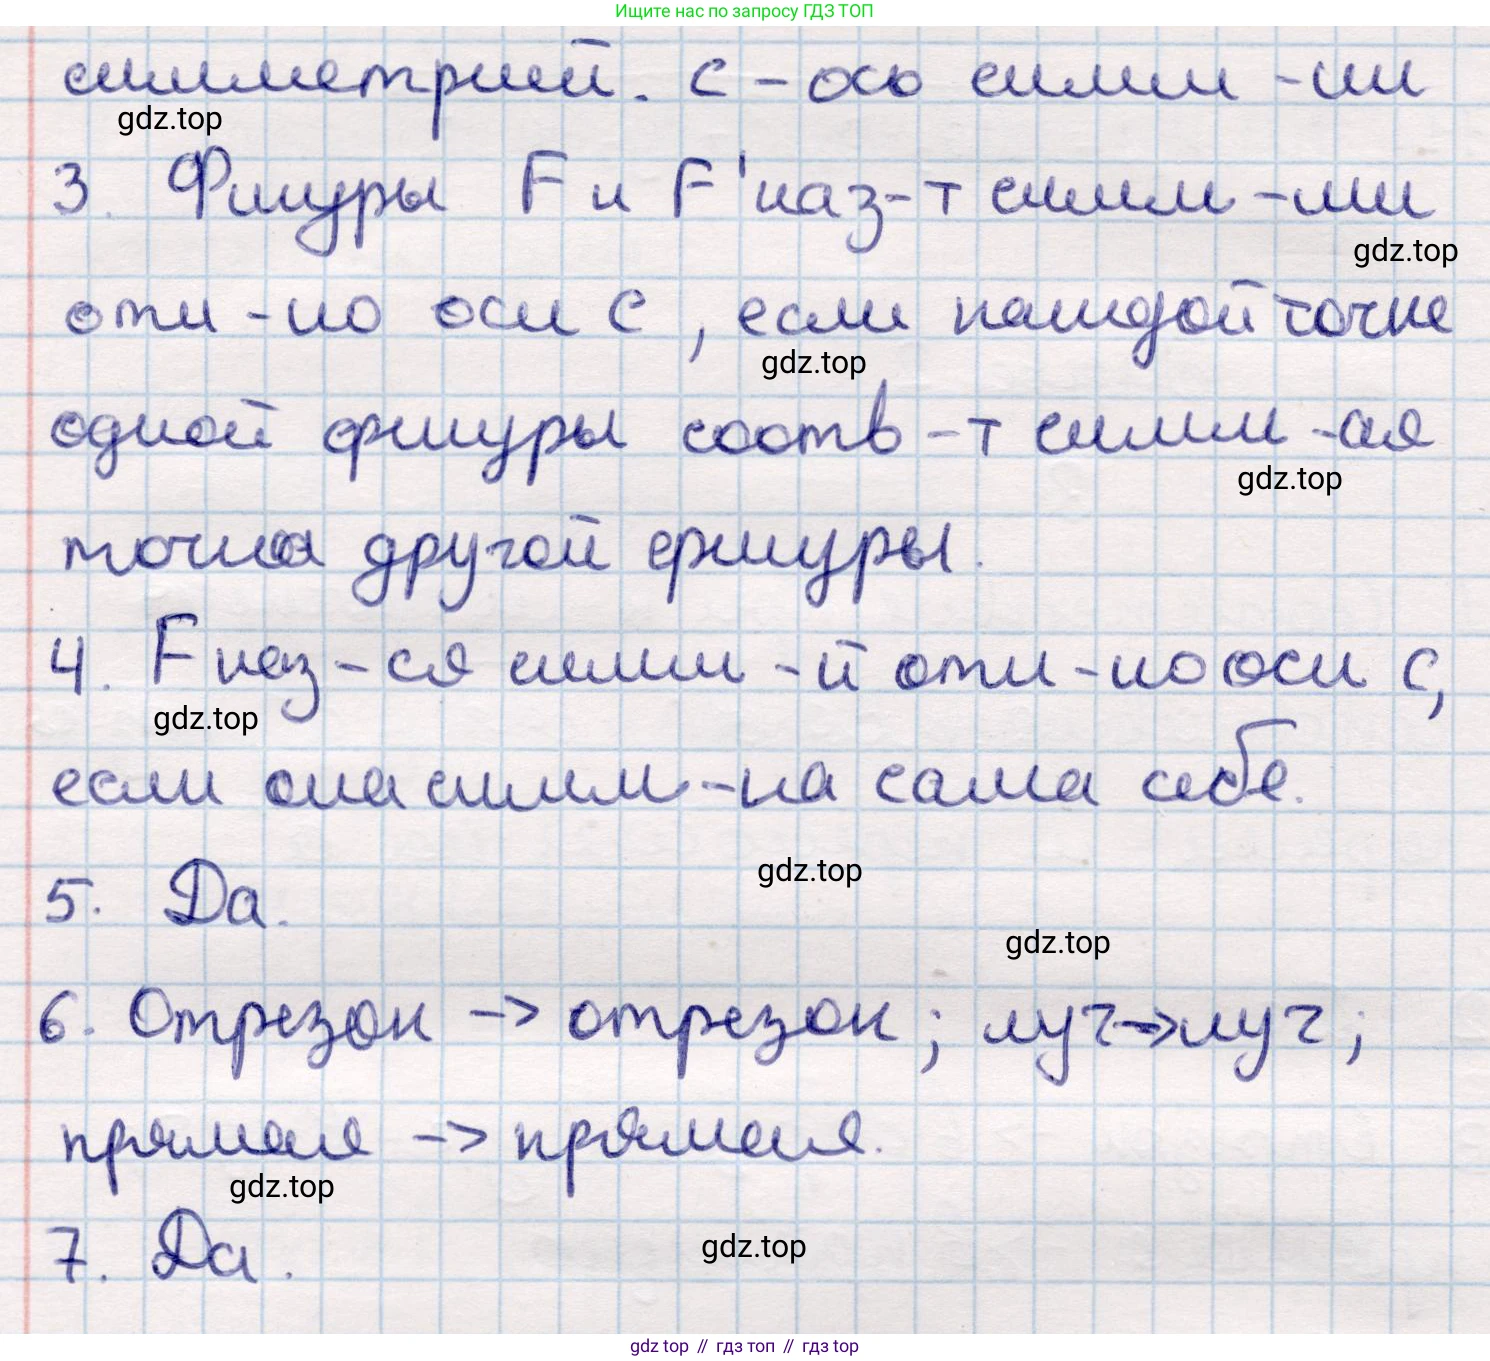 Ищите нас по запросу ГДЗ ТОП
симметрией. с – ось симм-ии
gdz.top
3. Фигуры F и F' наз-т симм-ми
gdz.top
отн-но оси с, если каждой точке
gdz.top
одной фигуры соотв-т симм-ая
gdz.top
точка другой фигуры.
4. F наз-ся симм-й отн-но оси с,
gdz.top
если она симм-на сама себе.
gdz.top
5. Да.
gdz.top
6. Отрезок -> отрезок; луч -> луч;
прямая -> прямая.
gdz.top
7. Да.
gdz.top
gdz top // гдз топ // гдз top